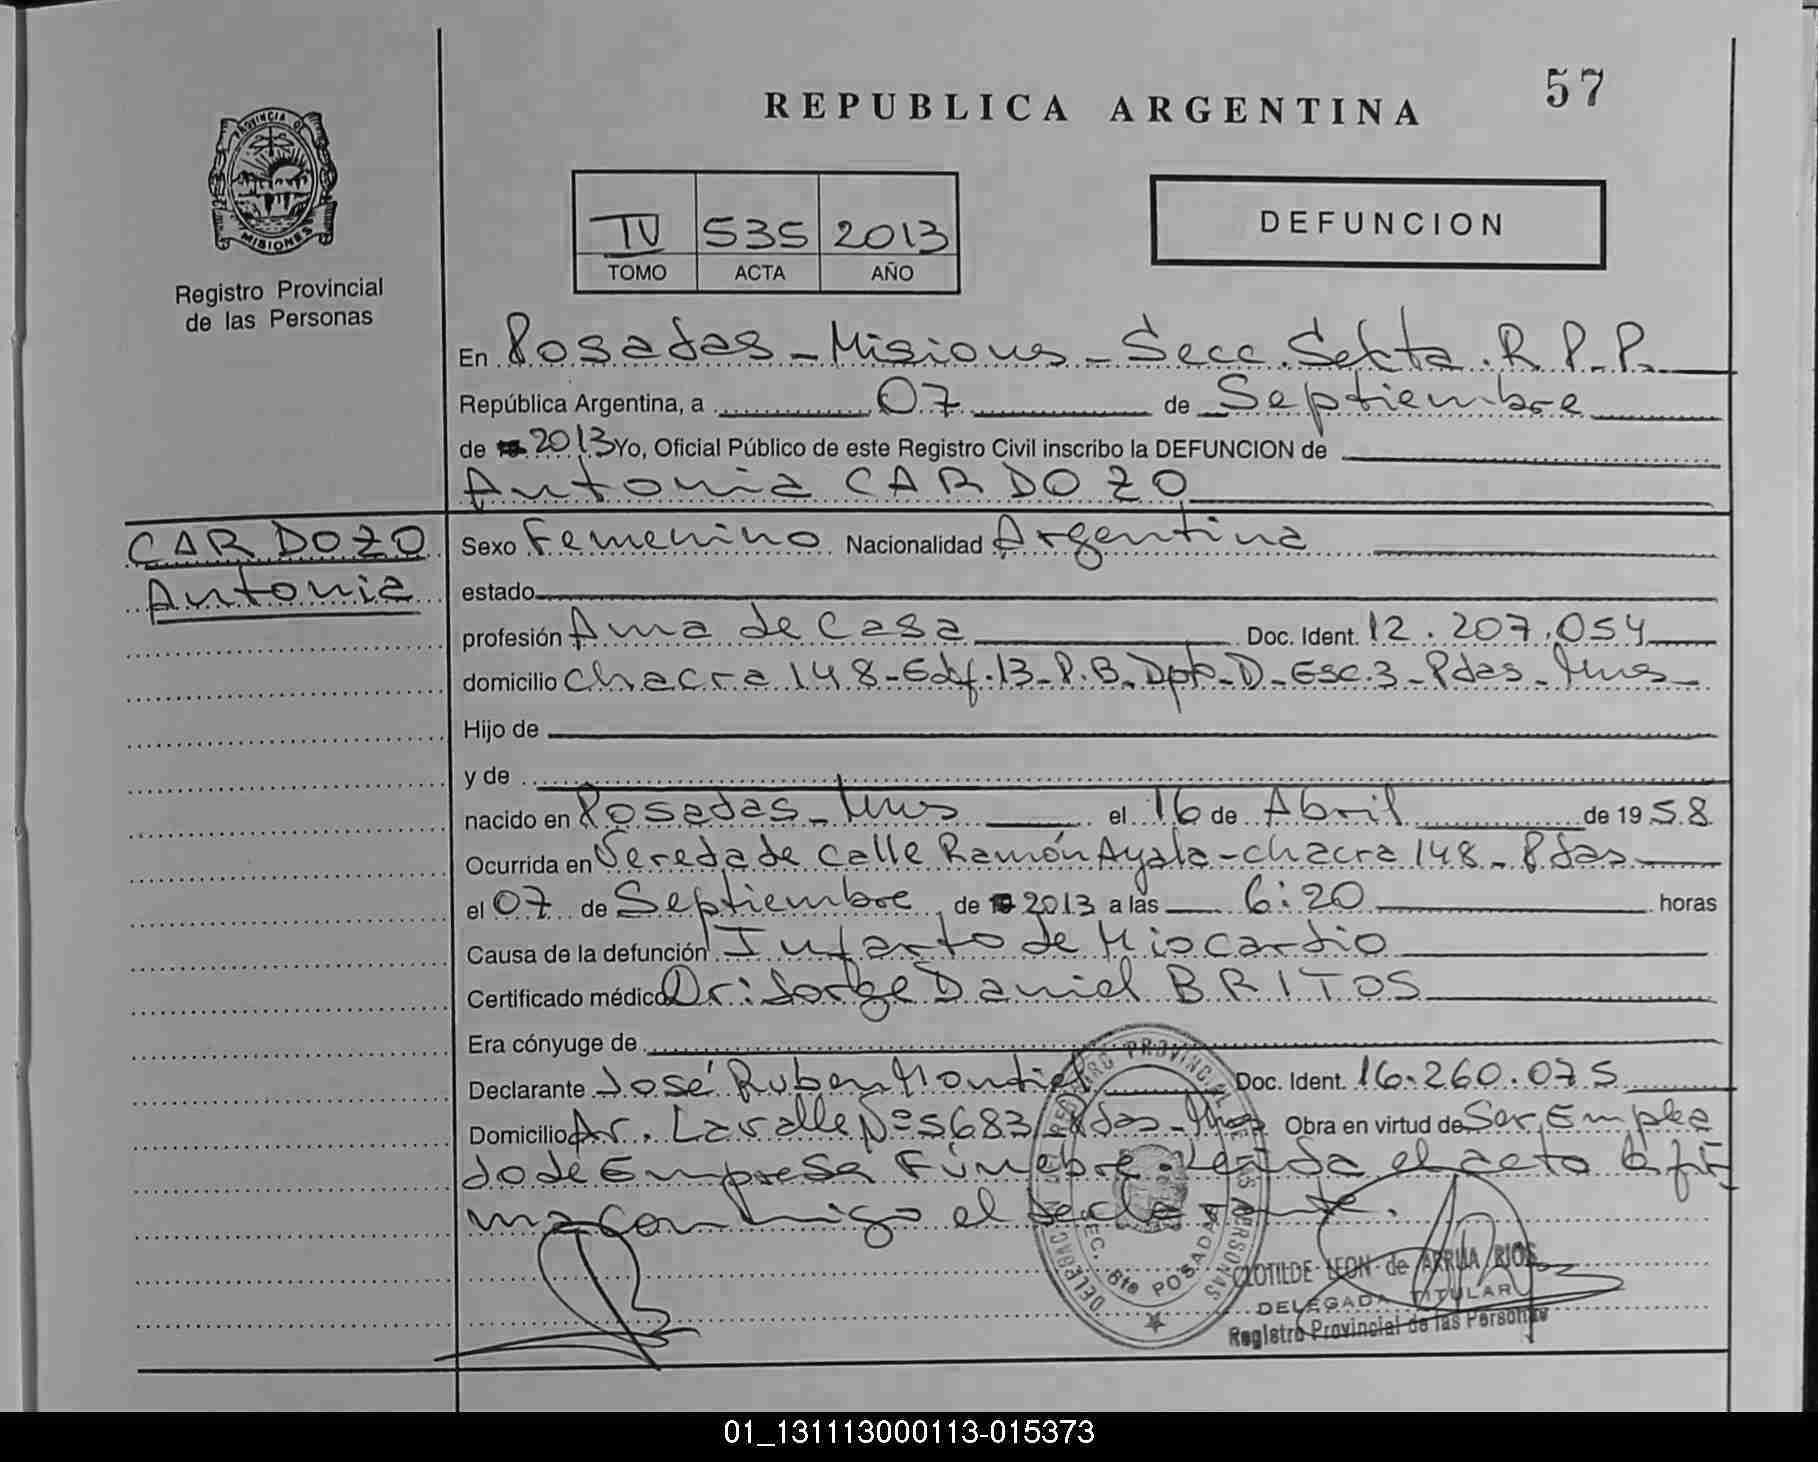 57
REPUBLICA ARGENTINA
PROVINCIA DE
MISIONES
Registro Provincial
de las Personas
IV 535 2013
TOMO ACTA AÑO
DEFUNCION
En Posadas - Misiones - Secc. Sexta. R.P.P.
República Argentina, a 07 de Septiembre
de 2013 Yo, Oficial Público de este Registro Civil inscribo la DEFUNCION de
Antonia CARDOZO
CARDOZO
Antonia
Sexo Femenino Nacionalidad Argentina
estado
profesión Ama de Casa Doc. Ident. 12.207.054
domicilio Chacra 148-Edf.13-P.B.Dpto-D-Esc.3-Pdas-Mnes
Hijo de
y de
nacido en Posadas-Mnes el 16 de Abril de 1958
Ocurrida en Vereda de Calle Ramón Ayala-chacra 148-Pdas
el 07 de Septiembre de 2013 a las 6:20 horas
Causa de la defunción Infarto de Miocardio
Certificado médico Dr: Jorge Daniel BRITOS
Era cónyuge de
Declarante José Ruben Montiel Doc. Ident. 16.260.075
Domicilio Av. Lavalle Nº 5683 Pdas-Mnes Obra en virtud de Ser Emplea
do de Empresa Fúnebre. Leida el acta la fir
ma conmigo el declarante.
DELEGACION DEL REGISTRO PROVINCIAL DE LAS PERSONAS
SEC. 6ta POSADAS
CLOTILDE LEON de ARRUA RIOS
DELEGADA TITULAR
Registro Provincial de las Personas
01_131113000113-015373